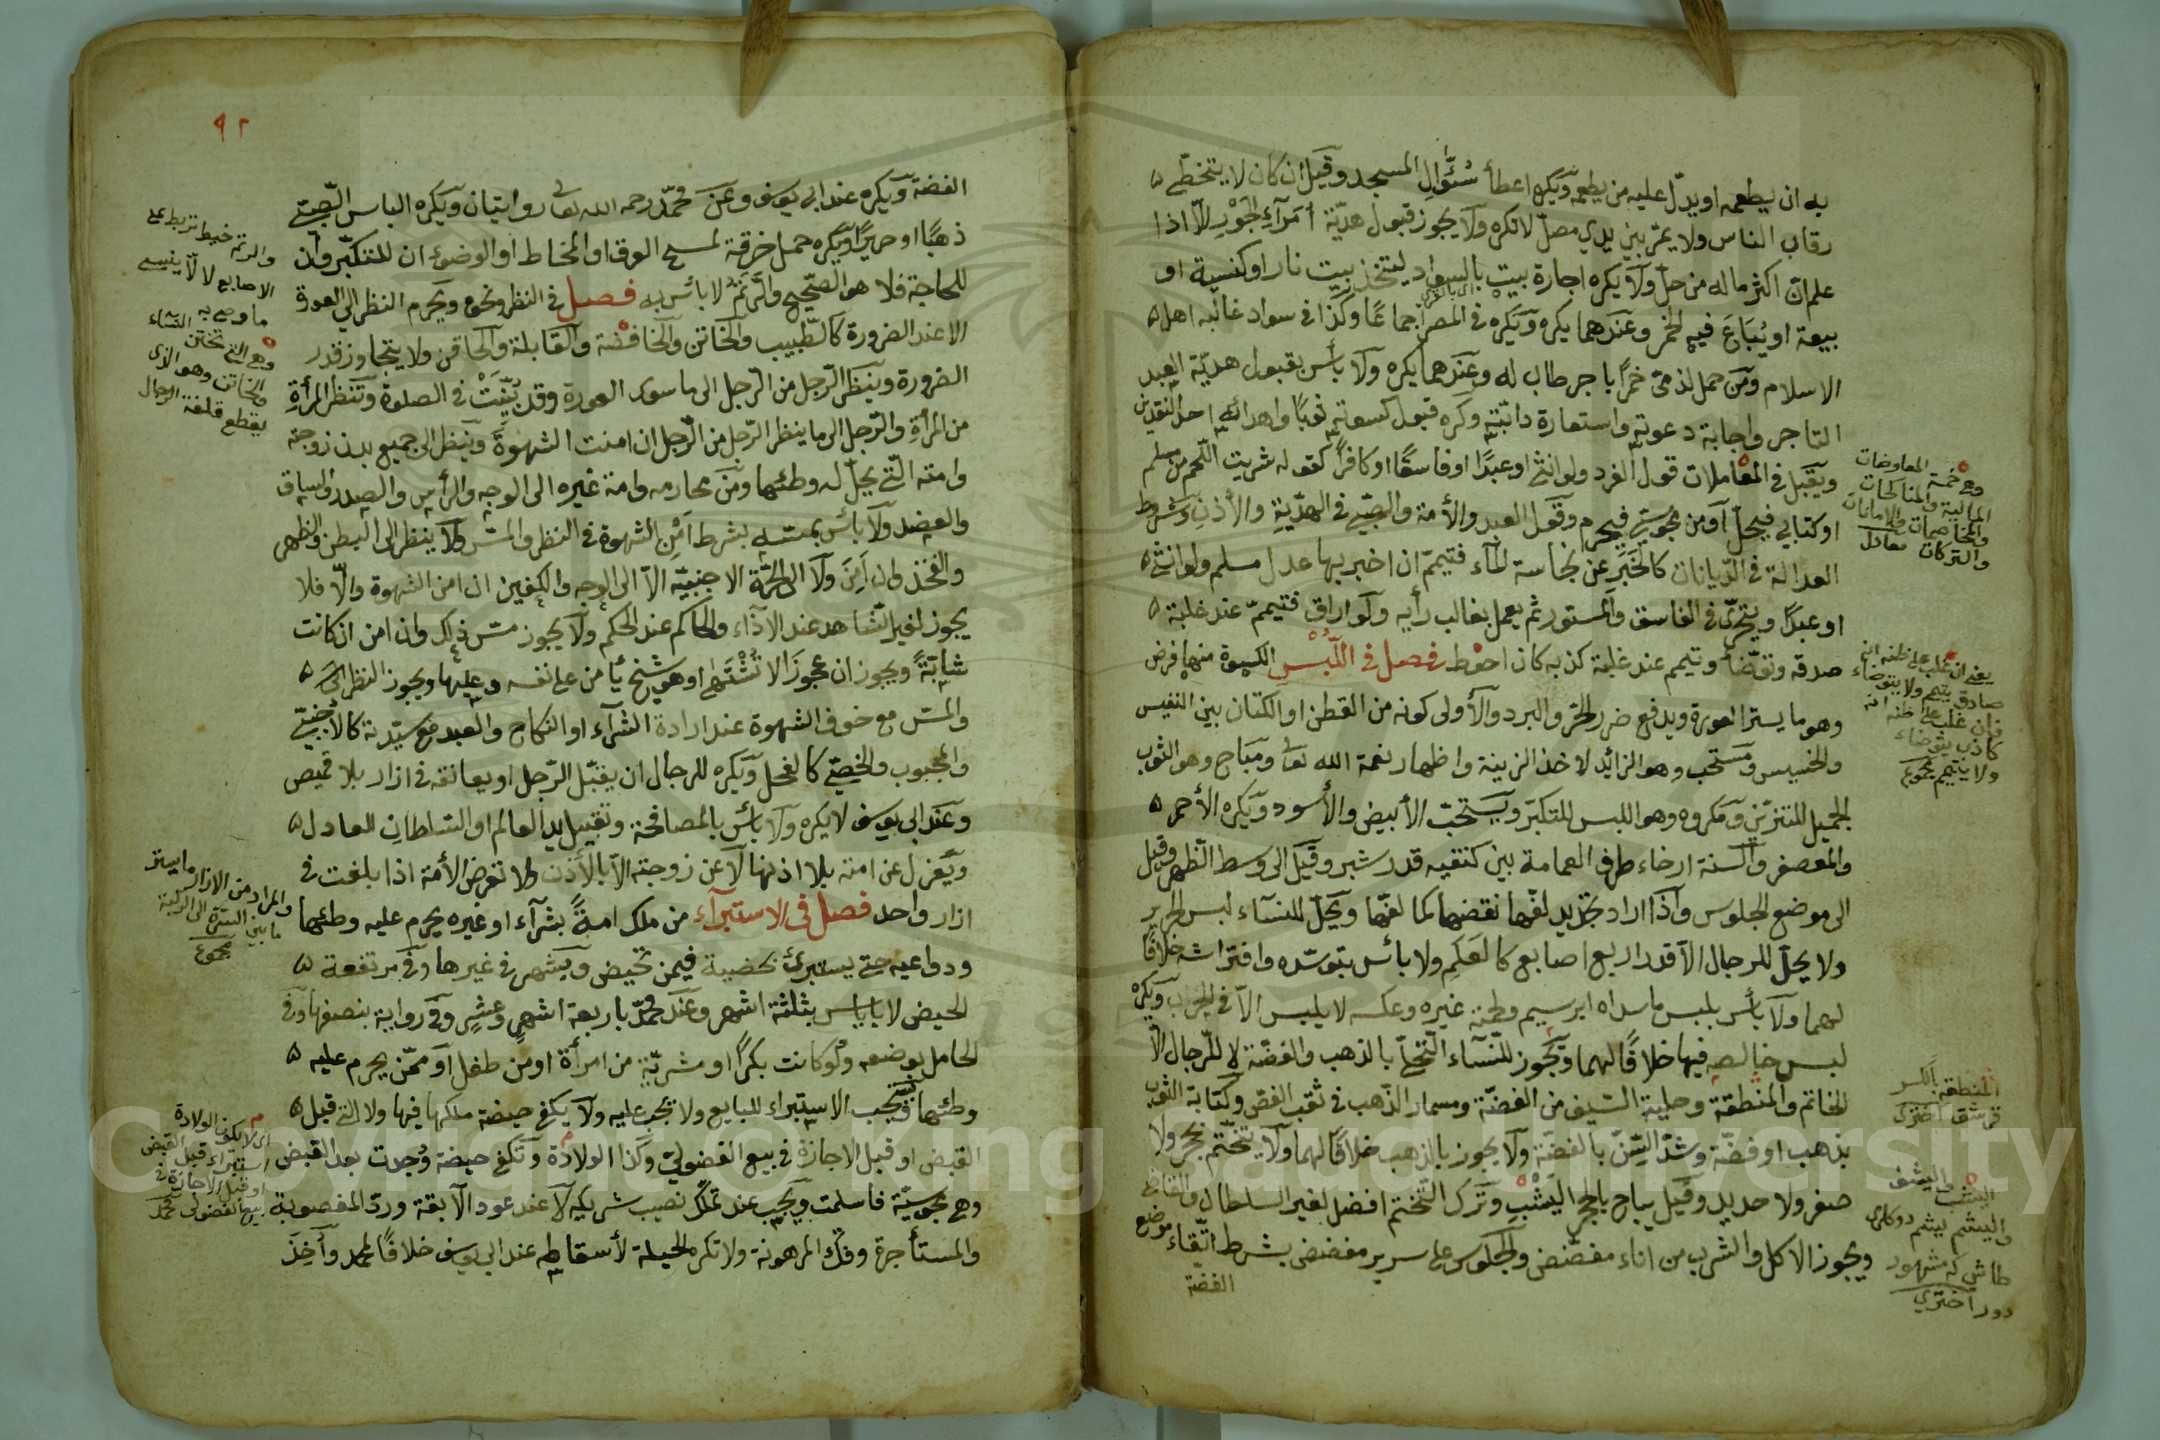 به ان يطعمه او يدلّ عليه من يطعمه ويكره اعطاء سُؤّال المسجد وقيل ان كان لا يتخطّى
رقاب الناس ولا يمرّ بين يدي مصلّ لا يكره ولا يجوز قبول هديّة امرآء الجَوْر الّا اذا
علم انّ اكثر ماله من حلّ ولا يكره اجارة بيت بالسواد ليتخذ بيت نار او كنيسة او
بيعة او يُبَاعَ فيه الخمر وعندهما يكره ويكره في المصر اجماعًا وكذا في سواد غالبه اهل
الاسلام ومن حمل لذمّى خمرًا باجر طاب له وعندهما يكره ولا بأس بقبول هديّة العبد
التاجر واجابة دعوته واستعارة دابّته وكره قبول كسوته ثوبًا واهدائه احد النقدين
ويقبل في المعاملات قول الفرد ولو انثى او عبدًا او فاسقًا او كافرًا كقوله شريت اللّحم من مسلم
او كتابي فيحلّ او من مجوسيّ فيحرم وقول العبد والأمة والصبّى في الهديّة والأذن وشرط
العدالة في الدّيانات كالخبر عن نجاسة المآء فتيمم ان اخبر بها عدل مسلم ولو انثى
او عبدًا ويتحرّى في الفاسق والمستور ثم يعمل بغالب رأيه ولو اراق فتيممّ عند غلبة
صدقه وتوضّأ وتيمم عند غلبة كذبه كان احوط فصل في اللُّبْس الكسوة منها فرض
وهو ما يستر العورة ويدفع ضرر الحرّ والبرد والأولى كونه من القطن او الكتان بين النفيس
والخسيس ومستحب وهو الزائد لاخذ الزينة واظهار نعمة الله تعالى ومباح وهو الثوب
الجميل للتزيّن ومكروه وهو اللبس للتكبّر ويستحبّ الأبيض والأسود ويكره الأحمر
والمعصفر والسنة ارخاء طرف العمامة بين كتفيه قدر شبر وقيل الى وسط الظهر وقيل
الى موضع الجلوس واذا اراد تجديد لفّها نقضها كما لفّها ويحلّ للنسآء لبس الحرير
ولا يحلّ للرجال الّا قدر اربع اصابع كالعَلَم ولا بأس بتوسّده وافتراشه خلافًا
لهما ولا بأس بلبس ما سداه ابريسم ولحمته غيره وعكسه لا يلبس الّا في الحرب ويكره
لبس خالصه فيها خلافًا لهما ويجوز للنّسآء التحلّى بالذهب والفضّة لا للرّجال الّا
الخاتم والمنطقة وحلية السّيف من الفضّة ومسمار الذّهب في ثقب الفصّ وكتابة الثوب
بذهب او فضّة وشدّ السّنّ بالفضّة ولا يجوز بالذهب خلافًا لهما ولا يتختّم بحجر ولا
صفر ولا حديد وقيل يباح بالحجر اليَشْب وترك التّختم افضل لغير السلطان والقاضى
ويجوز الاكل والشرب من اناء مفضّض والجلوس على سرير مفضض بشرط اتّقاء موضع
الفضة
وهى خمسة المعاوضات
المالية والمناكحات
والمخاصمات والامانات
والتركات
يعنى ان غلب على ظنه انه
صادق يتيمم ولا يتوضاء
فان غلب على ظنه انه
كاذب يتوضاء
ولا يتيمم مجموع
المنطقة بالكسر
قوشق اختري
اليشب واليشف
واليشم يشم دوكلرى
طاش كه مشهور
دور اختري
٩٢
الفضة ويكره عند ابى يوسف وعن محمّد رحمه الله تعالى روايتان ويكره الباس الصّبىّ
ذهبًا او حريرًا ويكره حمل خرقة لمسح العرق او المخاط او الوضوء ان للتكبّر وان
للحاجة فلا هو الصّحيح والرَّتَمُ لا بأس به فصل في النظر ونحوه ويحرم النظر الى العورة
الا عند الضرورة كالطّبيب والخاتن والخافضة والقابلة والحاقن ولا يتجاوز قدر
الضرورة وينظر الرّجل من الرّجل الى ما سوى العورة وقد بُيِّنَتْ في الصلوة وتنظر المرأة
من المرأة والرّجل الى ما ينظر الرّجل من الرّجل ان امنت الشهوة وينظر الى جميع بدن زوجته
وامته الّتى يحلّ له وطئها ومن محارمه وامة غيره الى الوجه والرأس والصدر والساق
والعضد ولا بأس بمسّه بشرط أمن الشهوة في النظر والمسّ ولا ينظر الى البطن والظهر
والفخذ وان اَمِنَ ولا الى الحرّة الاجنبيّه الّا الى الوجه والكفين ان امن الشهوة والّا فلا
يجوز لغير الشّاهد عند الادآء والحاكم عند الحكم ولا يجوز مسّ ذلك وان امن ان كانت
شابّةً ويجوز ان عجوزًا لا تُشْتَهى او هو شيخ يأمن على نفسه وعليها ويجوز النظر الى
والمسّ مع خوف الشهوة عند ارادة الشرآء او النكاح والعبد مع سيّدته كالأجنبىّ
والمجبوب والخصىّ كالفحل ويكره للرجال ان يقبّل الرّجل او يعانقه في ازار بلا قميص
وعند ابى يوسف لا يكره ولا بأس بالمصافحة وتقبيل يد العالم او السّلطان العادل
ويعزل عن امته بلا اذنها لا عن زوجته الّا بالأذن ولا تعرض الأمة اذا بلغت في
ازار واحد فصل في الاستبرآء من ملك امةً بشرآء او غيره يحرم عليه وطئها
ودواعيه حتى يستبرئ بحيضة فيمن تحيض وبشهر في غيرها وفى مرتفعة
الحيض لا باياس بثلثة اشهر وعند محمّد باربعة اشهر وعشر وفى رواية بنصفها وفى
الحامل بوضعه ولو كانت بكرًا او مشريّة من امرأة او من طفل او ممّن يحرم عليه
وطئها ويستحب الاستبراء للبايع ولا يجب عليه ولا يكفى حيضة ملكها فيها ولا التى قبل
القبض او قبل الاجازة في بيع الفضولىّ وكذا الولادة وتكفى حيضة وُجدت بعد القبض
وهى مجوسيّة فاسلمت ويجب عند تملّك نصيب شريكه لا عند عود الآبقة وردّ المغصوبة
والمستأجرة وفكّ المرهونة ولا تكره الحيلة لأسقاطه عند ابى يوسف خلافًا لمحمد وأخِذَ
والرتم خيط تربط على
الاصابع لا لا ينسى
ما وصى به
وهى التى تختن النساء
والخاتن وهو الذى
يقطع قلفة الرجال
والمراد من الازار ما يستر
ما بين السرّة الى الركبة
مجموع
اى لا يكفى الولادة
استبراء قبل القبض
او قبل الاجازة في
بيع الفضولى